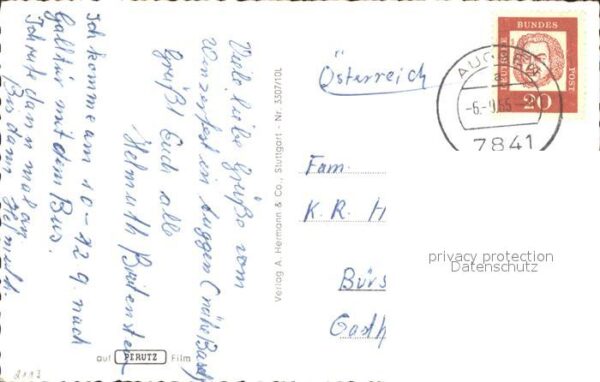 Viele liebe Grüße vom
Winzerfest in Auggen (nähe Basel)
grüßt Euch alle
Helmuth Breitenstein
Ich komme am 10-12 9. nach
Galtür mit dem Bus.
Schreibe dann mal an
Bis dann Helmuth
Verlag A. Hermann & Co., Stuttgart - Nr. 3307/10L
auf PERUTZ Film
2113
Österreich
DEUTSCHE
BUNDES
POST
20
AUGGEN
a
-6.-9.65-
7841
Fam.
K. R. H
Bürs
Gasth
privacy protection
Datenschutz